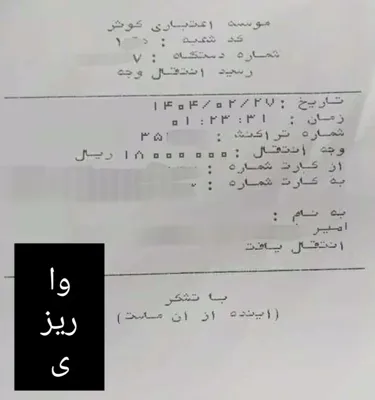 موسسه اعتباری کوثر
کد شعبه :
شماره دستگاه : ۷
رسید انتقال وجه
تاریخ : ۱۴۰۴/۰۲/۲۷
زمان : ۰۱:۲۳:۳۱
شماره تراکنش : ۳۵
وجه انتقال : ۱۸۰۰۰۰۰۰ ریال
از کارت شماره :
به کارت شماره :
به نام :
امیر
انتقال یافت
با تشکر
(اینده از ان ماست)
وا
ریز
ی